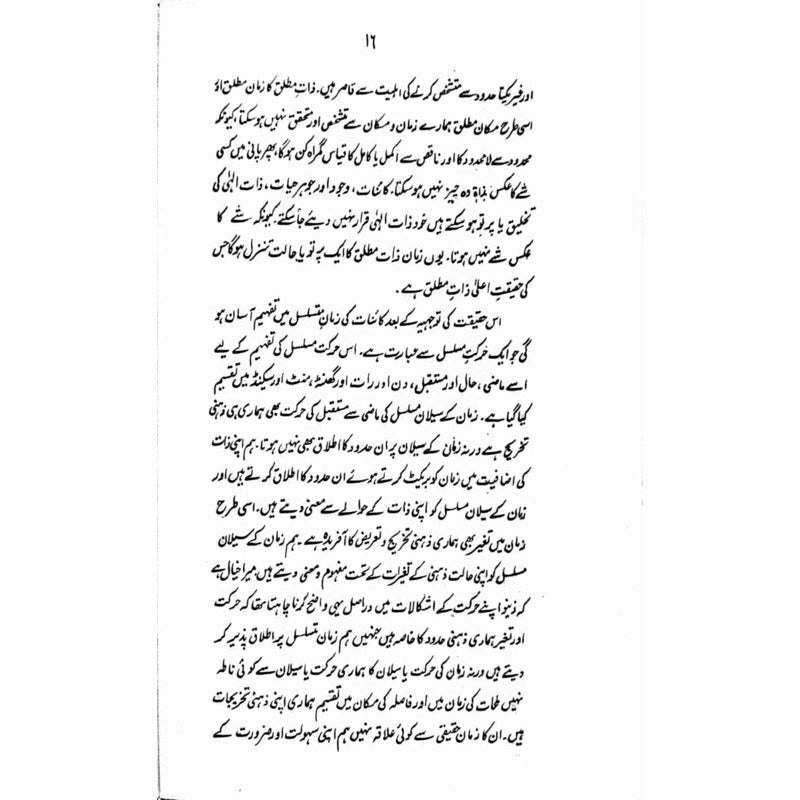 ۱۶
اور غیر یکتا حدود سے متشخص کرنے کی اہلیت سے قاصر ہیں۔ ذاتِ مطلق کا زمانِ مطلق اور
اسی طرح مکان مطلق ہمارے زمان و مکان سے متشخص اور متحقق نہیں ہو سکتا، کیونکہ
محدود سے لامحدود کا اور ناقص سے اکمل یا کامل کا قیاس گمراہ کن ہو گا، پھر پانی میں کسی
شے کا عکس بذاتہٖ وہ چیز نہیں ہو سکتا۔ کائنات، وجود اور جوہر حیات، ذات الٰہی کی
تخلیق یا پرتو ہو سکتے ہیں خود ذات الٰہی قرار نہیں دیئے جا سکتے۔ کیونکہ شے کا
عکس شے نہیں ہوتا۔ یوں زمان ذات مطلق کا ایک پرتو یا حالت تنزل ہو گا جس
کی حقیقتِ اعلیٰ ذاتِ مطلق ہے۔
اس حقیقت کی توجیہہ کے بعد کائنات کی زمانِ متسلسل میں تفہیم آسان ہو
گی جو ایک حرکتِ مسلسل سے عبارت ہے۔ اس حرکت مسلسل کی تفہیم کے لیے
اسے ماضی، حال اور مستقبل، دن اور رات اور گھنٹہ، منٹ اور سیکنڈ میں تقسیم
کیا گیا ہے۔ زمان کے سیلان مسلسل کی ماضی سے مستقبل کی حرکت بھی ہماری ہی ذہنی
تخریج ہے ورنہ زمان کے سیلان پر ان حدود کا اطلاق بھی نہیں ہوتا۔ ہم اپنی ذات
کی اضافیت میں زمان کو بریکٹ کرتے ہوئے ان حدود کا اطلاق کرتے ہیں اور
زمان کے سیلان مسلسل کو اپنی ذات کے حوالے سے معنی دیتے ہیں۔ اسی طرح
زمان میں تغیر بھی ہماری ذہنی تخریج و تعریض کا آفریدہ ہے۔ ہم زمان کے سیلان
مسلسل کو اپنی حالت ذہنی کے تغیرات کے تحت مفہوم و معنی دیتے ہیں میرا خیال ہے
کہ زینو اپنے حرکت کے اشکالات میں دراصل یہی واضح کرنا چاہتا تھا کہ حرکت
اور تغیر ہماری ذہنی حدود کا خاصہ ہیں جنہیں ہم زمان متسلسل پر اطلاق پذیر کر
دیتے ہیں ورنہ زمان کی حرکت یا سیلان کا ہماری حرکت یا سیلان سے کوئی ناطہ
نہیں لمحات کی زمان میں اور فاصلہ کی مکان میں تقسیم ہماری اپنی ذہنی تخریجات
ہیں۔ ان کا زمان حقیقی سے کوئی علاقہ نہیں ہم اپنی سہولت اور ضرورت کے